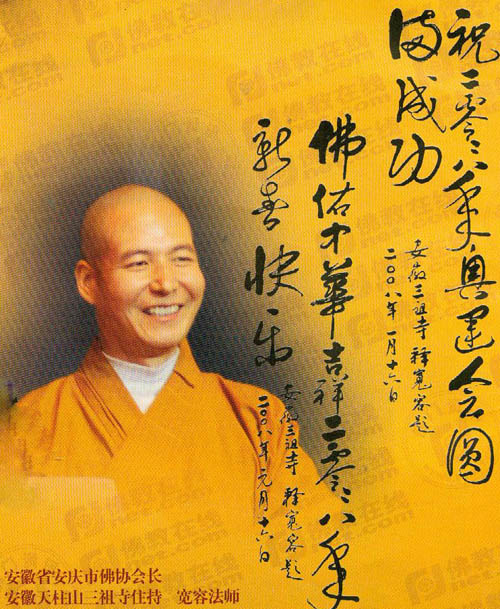 祝二零零八年奥运会圆
满成功
安徽三祖寺 释宽容题
二〇〇八年一月十六日
佛佑中華吉祥二零零八年
新春快乐
安徽三祖寺 释宽容题
二〇〇八年元月十六日
安徽省安庆市佛协会长
安徽天柱山三祖寺住持 宽容法师
佛教在线